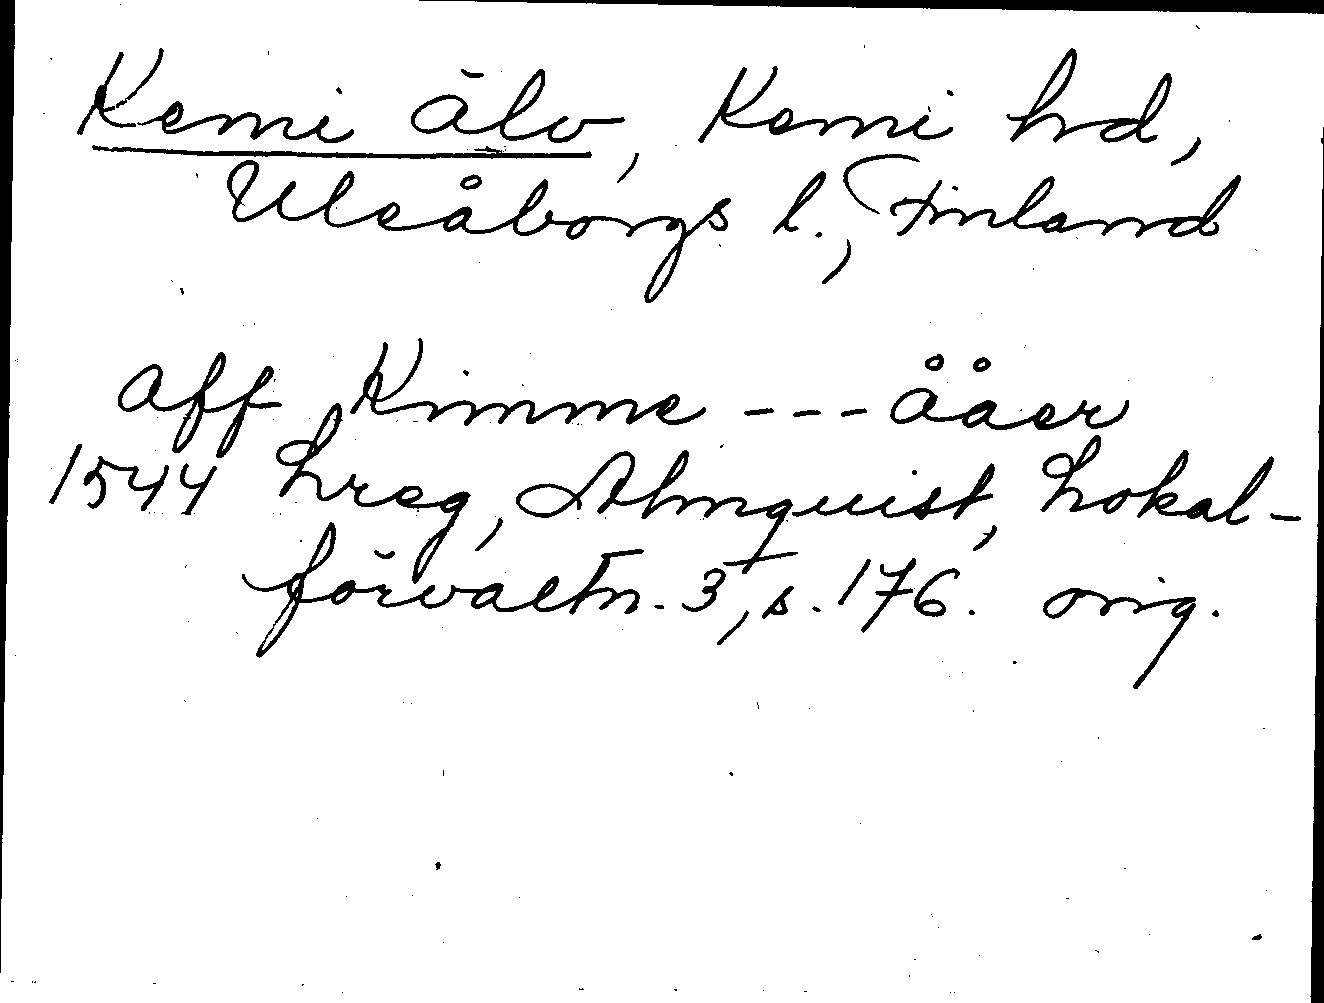 Kemi älv, Kemi hd,
Uleåborgs l., Finland
aff Kimme --- ååer
1544 Lreg, Almquist, Lokal-
förvaltn. 3, s. 176. orig.